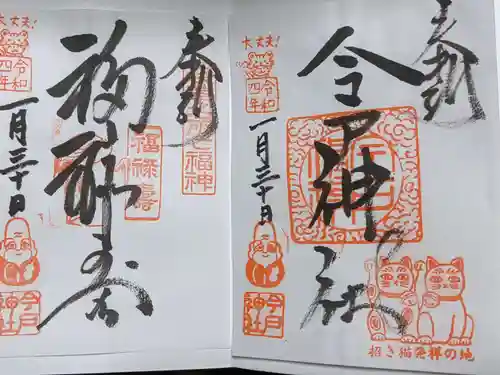 奉拝
今戸神社
大丈夫!
令和
四年
一月三十日
今戸
神社
招き猫発祥の地
奉拝
七福神
福禄寿
福禄寿
大丈夫!
令和
四年
一月三十日
今戸
神社